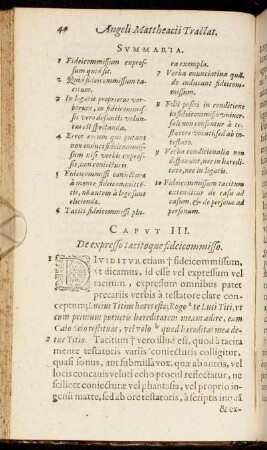 40 Angeli Matthæacii Tractat.
SVMMARIA.
1 Fideicommissum expres-
sum quid sit.
2 Quid fideicommissum ta-
citum.
3 In legatis proprietas ver-
borum, in fideicommis-
so vero defuncti volun-
tas est spectanda.
4 Error eorum qui putant
non induci fideicommis-
sum nisi verbis expres-
sis, non coniecturis.
5 Fideicommissi coniectura
à mente fideicommitten-
tis, vel autem à lege sunt
colligendæ.
6 Taciti fideicommissi plu-
ra exempla.
7 Verba enunciatiua quan-
do inducant fideicom-
missum.
8 Filii positi in conditione
in fideicommisso vniuer-
soli non censentur à te-
statore vocati, sed ab in-
testato.
9 Verba conditionalia non
disponunt, nec in heredi-
tate, nec in legatis.
10 Fideicommissum tacitum
extenditur de casu ad
casum, & de persona ad
personam.
CAPVT III.
De expresso tacitoque fideicommisso.
1 DIVIDITVR etiam † fideicommissum,
vt dicamus, id esse vel expressum vel
tacitum, expressum omnibus patet
precariis verbis à testatore clare con-
ceptum, Lucius Titius heres esto; Rogo te Luci Titi, vt
cum primum poteris hereditatem meam adire, eam
Caio Seio restituas, vel volo hereditas mea de-
2 tur Titio. Tacitum † vero illud est, quod à tacita
mente testatoris variis coniecturis colligitur,
quasi sonus, aut submissa vox, quæ ab antris, vel
locis concauis velut echo procul resectatur, ne
scilicet coniecturæ vel phantasia, vel proprio in-
genii matte, sed ab ore testatoris, à scriptis in
& ex-